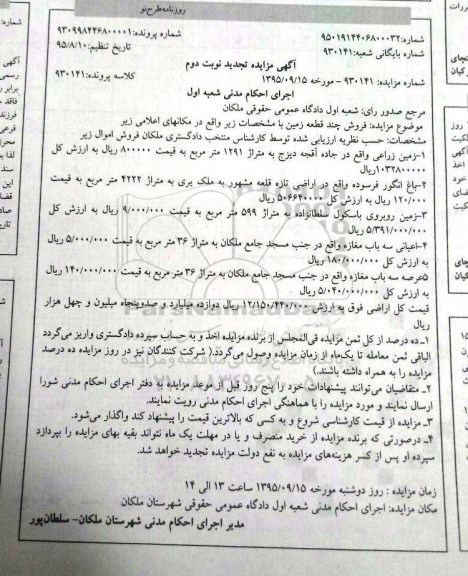 روزنامه طرح نو
شماره: ۹۵۰۱۹۱۴۴۰۶۸۰۰۰۳۲ شماره پرونده: ۹۳۰۹۹۸۴۴۶۸۰۰۰۰۱
شماره بایگانی شعبه: ۹۳۰۱۴۱ تاریخ تنظیم: ۹۵/۸/۱۰
آگهی مزایده تجدید نوبت دوم
شماره مزایده: ۹۳۰۱۴۱ - مورخه ۱۳۹۵/۰۹/۱۵ کلاسه پرونده: ۹۳۰۱۴۱
اجرای احکام مدنی شعبه اول
مرجع صدور رای: شعبه اول دادگاه عمومی حقوقی ملکان
موضوع مزایده: فروش چند قطعه زمین با مشخصات زیر واقع در مکانهای اعلامی زیر
مشخصات: حسب نظریه ارزیابی شده توسط کارشناس منتخب دادگستری ملکان فروش اموال زیر
۱-زمین زراعی واقع در جاده آقجه دیزج به متراژ ۱۲۹۱ متر مربع به قیمت ۸۰۰۰۰۰ ریال به ارزش کل
۱۰۳۲۸۰۰۰۰۰ریال
۲-باغ انگور فرسوده واقع در اراضی تازه قلعه مشهور به ملک یری به متراژ ۴۲۲۲ متر مربع به قیمت
۱۲۰/۰۰۰ ریال به ارزش کل ۵۰۶۶۴۰۰۰۰ ریال
۳-زمین روبروی باسکول سلطانزاده به متراژ ۵۹۹ متر مربع به قیمت ۹/۰۰۰/۰۰۰ ریال به ارزش کل
۵/۳۹۱/۰۰۰/۰۰۰ ریال
۴-اعیانی سه باب مغازه واقع در جنب مسجد جامع ملکان به متراژ ۳۶ متر مربع به قیمت ۵/۰۰۰/۰۰۰ ریال
به ارزش کل ۱۸۰/۰۰۰/۰۰۰ ریال
۵عرصه سه باب مغازه واقع در جنب مسجد جامع ملکان به متراژ ۳۶ متر مربع به قیمت ۱۴۰/۰۰۰/۰۰۰ ریال
به ارزش کل ۵/۰۴۰/۰۰۰/۰۰۰ ریال
قیمت کل اراضی فوق به ارزش ۱۲/۱۵۰/۴۴۰/۰۰۰ ریال دوازده میلیارد و صدوپنجاه میلیون و چهل هزار
ریال
۱_ده درصد از کل ثمن مزایده فی‌المجلس از برنده مزایده اخذ و به حساب سپرده دادگستری واریز می‌گردد
الباقی ثمن معامله تا یک‌ماه از زمان مزایده وصول می‌گردد.( شرکت کنندگان نیز در روز مزایده ده درصد
مزایده را به همراه داشته باشند.)
۲_ متقاضیان می‌توانند پیشنهادات خود را پنج روز قبل از موعد مزایده به دفتر اجرای احکام مدنی شورا
ارسال نمایند و مورد مزایده را با هماهنگی اجرای احکام مدنی رویت نمایند.
۳_ مزایده از قیمت کارشناسی شروع و به کسی که بالاترین قیمت را پیشنهاد کند واگذار می‌شود.
۴_ درصورتی که برنده مزایده از خرید منصرف و یا در مهلت یک ماه نتواند بقیه بهای مزایده را بپردازد
سپرده او پس از کسر هزینه‌های مزایده به نفع دولت مزایده تجدید خواهد شد.
زمان مزایده : روز دوشنبه مورخه ۱۳۹۵/۰۹/۱۵ ساعت ۱۳ الی ۱۴
مکان مزایده: اجرای احکام مدنی شعبه اول دادگاه عمومی حقوقی شهرستان ملکان
مدیر اجرای احکام مدنی شهرستان ملکان- سلطان‌پور